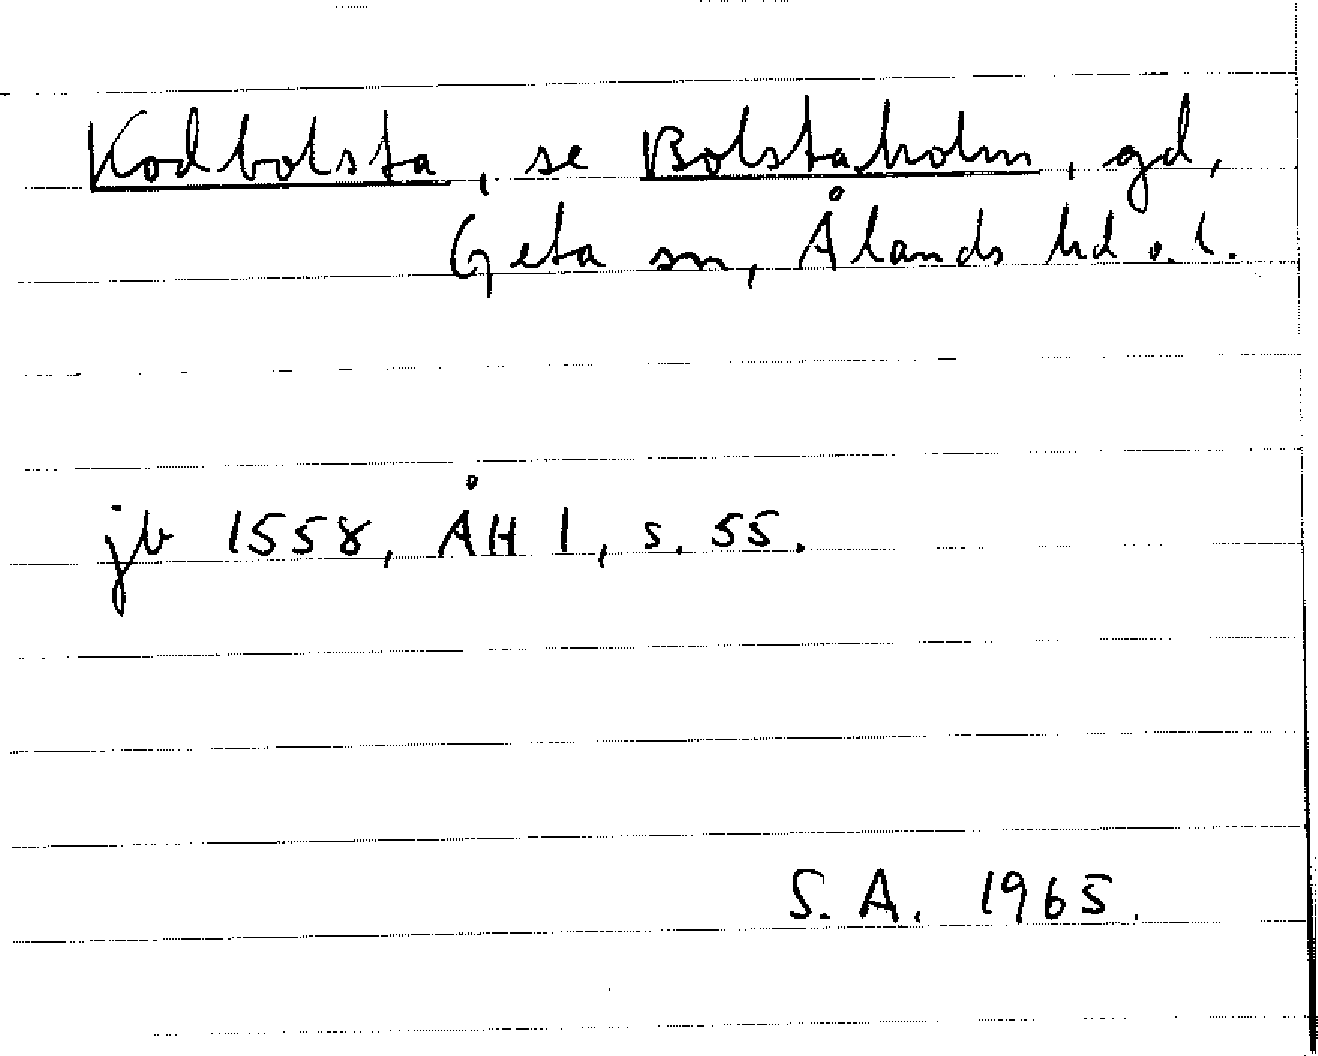 Kodbolsta, se Bolstaholm, gd,
Geta sn, Ålands hd o. l.
jb 1558, ÅH 1, s. 55.
S. A. 1965.